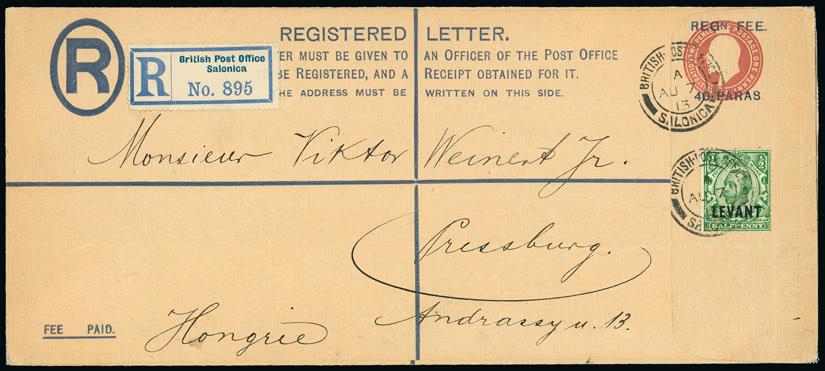 REGISTERED LETTER.
TER MUST BE GIVEN TO AN OFFICER OF THE POST OFFICE
BE REGISTERED, AND A RECEIPT OBTAINED FOR IT.
THE ADDRESS MUST BE WRITTEN ON THIS SIDE.
R
R
British Post Office
Salonica
No. 895
REGN. FEE.
POSTAGE ONE PENNY
40 PARAS
BRITISH POST
A
AU 7
13
SALONICA
Monsieur Viktor Weinert Jr.
BRITISH POST
AU 7
LEVANT
HALFPENNY
Pressburg.
Andrassy u. 13.
Hongrie
FEE PAID.